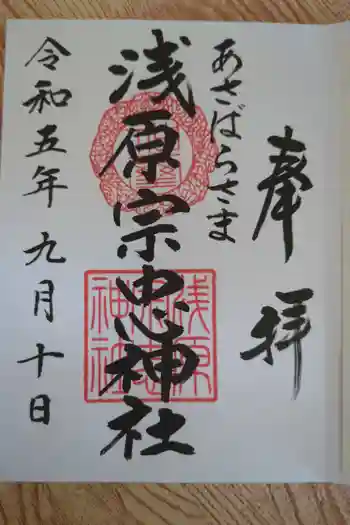 奉拝
あさばらさま
浅原宗忠神社
浅原
宗忠
神社
令和五年九月十日